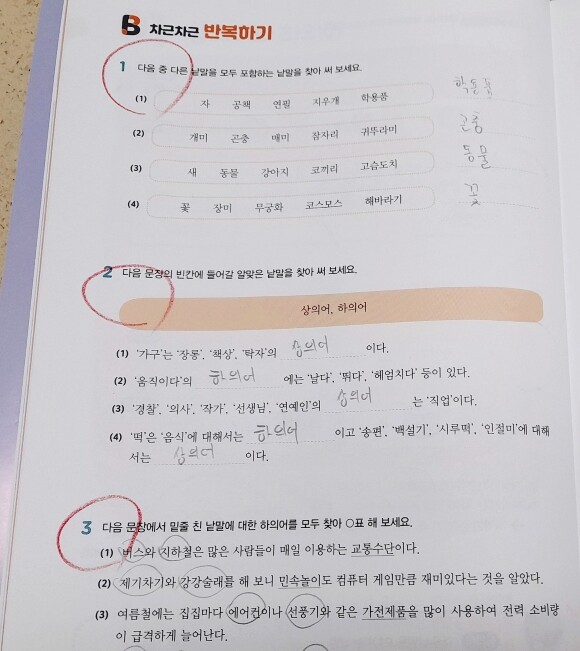 B 차근차근 반복하기
1 다음 중 다른 낱말을 모두 포함하는 낱말을 찾아 써 보세요.
(1) 자 공책 연필 지우개 학용품 학용품
(2) 개미 곤충 매미 잠자리 귀뚜라미 곤충
(3) 새 동물 강아지 코끼리 고슴도치 동물
(4) 꽃 장미 무궁화 코스모스 해바라기 꽃
2 다음 문장의 빈칸에 들어갈 알맞은 낱말을 찾아 써 보세요.
상의어, 하의어
(1) ‘가구’는 ‘장롱’, ‘책상’, ‘탁자’의 상의어 이다.
(2) ‘움직이다’의 하의어 에는 ‘날다’, ‘뛰다’, ‘헤엄치다’ 등이 있다.
(3) ‘경찰’, ‘의사’, ‘작가’, ‘선생님’, ‘연예인’의 상의어 는 ‘직업’이다.
(4) ‘떡’은 ‘음식’에 대해서는 하의어 이고 ‘송편’, ‘백설기’, ‘시루떡’, ‘인절미’에 대해
서는 상의어 이다.
3 다음 문장에서 밑줄 친 낱말에 대한 하의어를 모두 찾아 ○표 해 보세요.
(1) 버스와 지하철은 많은 사람들이 매일 이용하는 교통수단이다.
(2) 제기차기와 강강술래를 해 보니 민속놀이도 컴퓨터 게임만큼 재미있다는 것을 알았다.
(3) 여름철에는 집집마다 에어컨이나 선풍기와 같은 가전제품을 많이 사용하여 전력 소비량
이 급격하게 늘어난다.